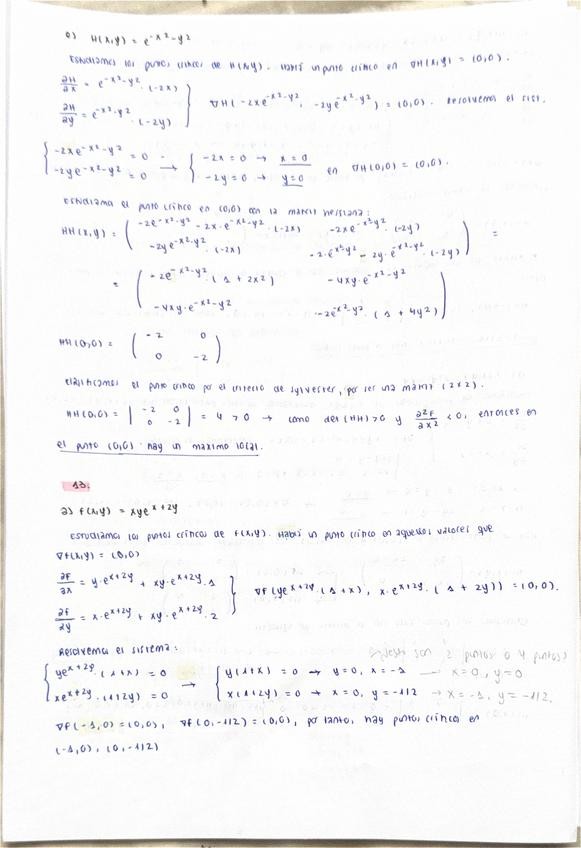 e) H(x,y) = e^-x2-y2
Estudiamos los puntos críticos de H(x,y). Habrá un punto crítico en ∇H(x,y) = (0,0).
∂H/∂x = e^-x2-y2 · (-2x)
∂H/∂y = e^-x2-y2 · (-2y)
∇H(-2xe^-x2-y2, -2ye^-x2-y2) = (0,0). Resolvemos el sist.
-2xe^-x2-y2 = 0 → -2x = 0 → x = 0
-2ye^-x2-y2 = 0 → -2y = 0 → y = 0
en ∇H(0,0) = (0,0).
Estudiamos el punto crítico en (0,0) con la matriz hessiana:
HH(x,y) = ( -2e^-x2-y2 - 2x·e^-x2-y2 · (-2x) -2xe^-x2-y2 · (-2y)
-2ye^-x2-y2 · (-2x) -2·e^-x2-y2 - 2y·e^-x2-y2 · (-2y) ) =
= ( -2e^-x2-y2 · (1 + 2x2) -4xy·e^-x2-y2
-4xy·e^-x2-y2 -2e^-x2-y2 · (1 + 4y2) )
HH(0,0) = ( -2 0
0 -2 )
Clasificamos el punto crítico por el criterio de Sylvester, por ser una matriz (2x2).
HH(0,0) = | -2 0
0 -2 | = 4 > 0 → como det(HH) > 0 y ∂2F/∂x2 < 0, entonces en
el punto (0,0) hay un máximo local.
13.
a) f(x,y) = xye^x+2y
Estudiamos los puntos críticos de f(x,y). Habrá un punto crítico en aquellos valores que
∇f(x,y) = (0,0)
∂f/∂x = y·e^x+2y + xy·e^x+2y · 1
∂f/∂y = x·e^x+2y + xy·e^x+2y · 2
∇f(ye^x+2y · (1+x), x·e^x+2y · (1+2y)) = (0,0).
Resolvemos el sistema:
son 2 puntos o 4 puntos?
ye^x+2y · (1+x) = 0 → y(1+x) = 0 → y = 0, x = -1 — x = 0, y = 0
xe^x+2y · (1+2y) = 0 → x(1+2y) = 0 → x = 0, y = -1/2 → x = -1, y = -1/2.
∇f(-1,0) = (0,0), ∇f(0,-1/2) = (0,0), por tanto, hay puntos críticos en
(-1,0), (0,-1/2)